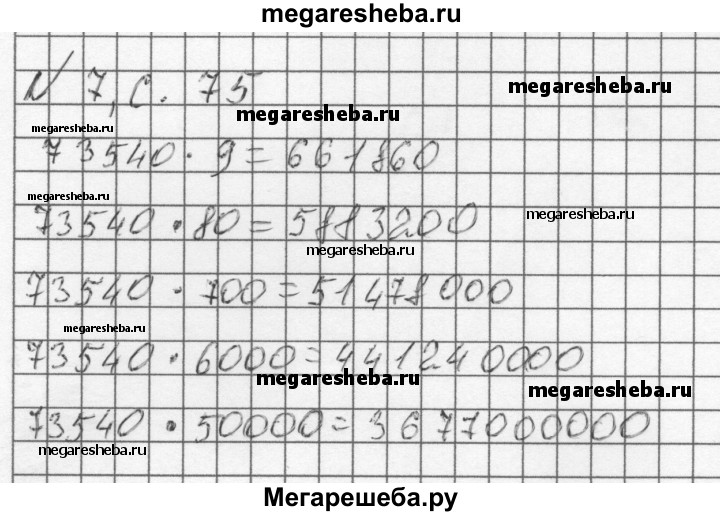 megaresheba.ru
N 7, с. 75
megaresheba.ru
megaresheba.ru
megaresheba.ru
73540 · 9 = 661860
megaresheba.ru
73540 · 80 = 5883200
megaresheba.ru
megaresheba.ru
73540 · 700 = 51478000
megaresheba.ru
73540 · 6000 = 441240000
megaresheba.ru
megaresheba.ru
73540 · 50000 = 3677000000
megaresheba.ru
Мегарешеба.ру